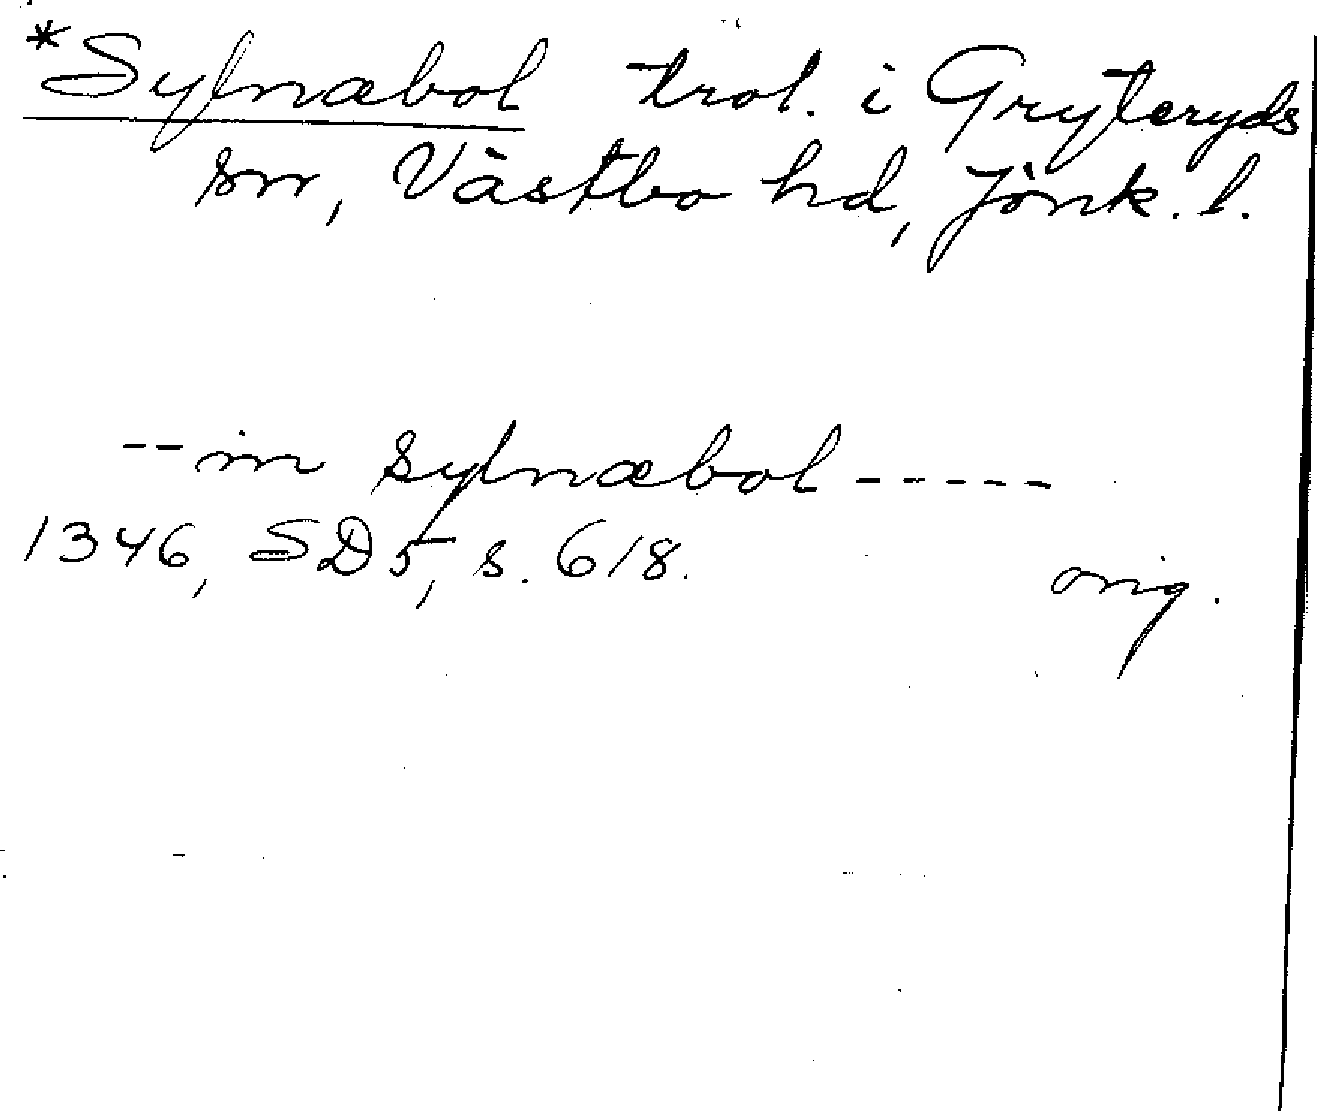 *Sylnæbol trol. i Gryteryds
sn, Västbo hd, Jönk. l.
-- in sylnæbol -----
1346, SD 5, s. 618.
orig.